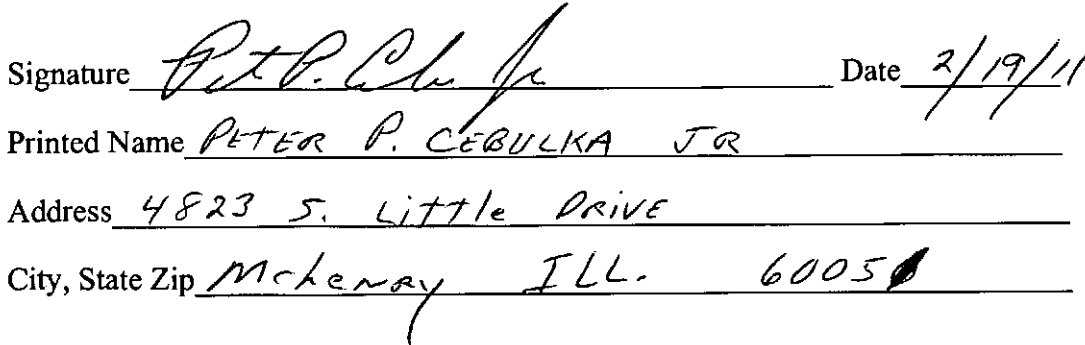 Signature Date 2/19/11
Printed Name PETER P. CEBULKA JR
Address 4823 S. Little DRIVE
City, State Zip Mchenry ILL.